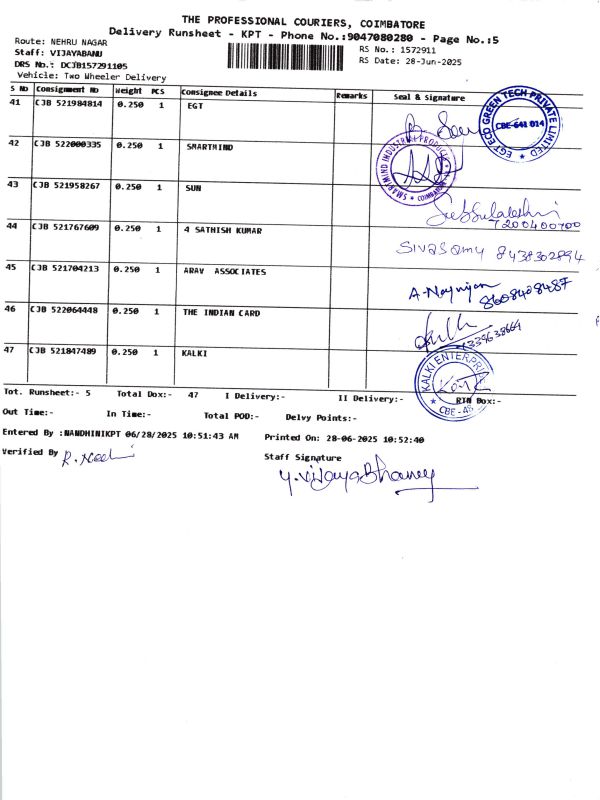 THE PROFESSIONAL COURIERS, COIMBATORE
Delivery Runsheet - KPT - Phone No.:9047080280 - Page No.:5
Route: NEHRU NAGAR
RS No.: 1572911
Staff: VIJAYABANU
RS Date: 28-Jun-2025
DRS No.: DCJB157291105
Vehicle: Two Wheeler Delivery
S No Consignment No Weight PCS Consignee Details Remarks Seal & Signature
41 CJB 521984814 0.250 1 EGT
EGT ECO GREEN TECH PRIVATE LIMITED
CBE-641 014
42 CJB 522000335 0.250 1 SMARTMIND
SMARTMIND INDUSTRIAL PRODUCTS
COIMBATORE
43 CJB 521958267 0.250 1 SUN
7200400700
44 CJB 521767609 0.250 1 4 SATHISH KUMAR
Sivasamy 8438302894
45 CJB 521704213 0.250 1 ARAV ASSOCIATES
8608408487
46 CJB 522064448 0.250 1 THE INDIAN CARD
47 CJB 521847489 0.250 1 KALKI
KALKI ENTERPRI
CBE-45
Tot. Runsheet:- 5 Total Dox:- 47 I Delivery:- II Delivery:- RTN Box:-
Out Time:- In Time:- Total POD:- Delvy Points:-
Entered By :NANDHINIKPT 06/28/2025 10:51:43 AM Printed On: 28-06-2025 10:52:40
Verified By
Staff Signature
Y.VijayaBhanu